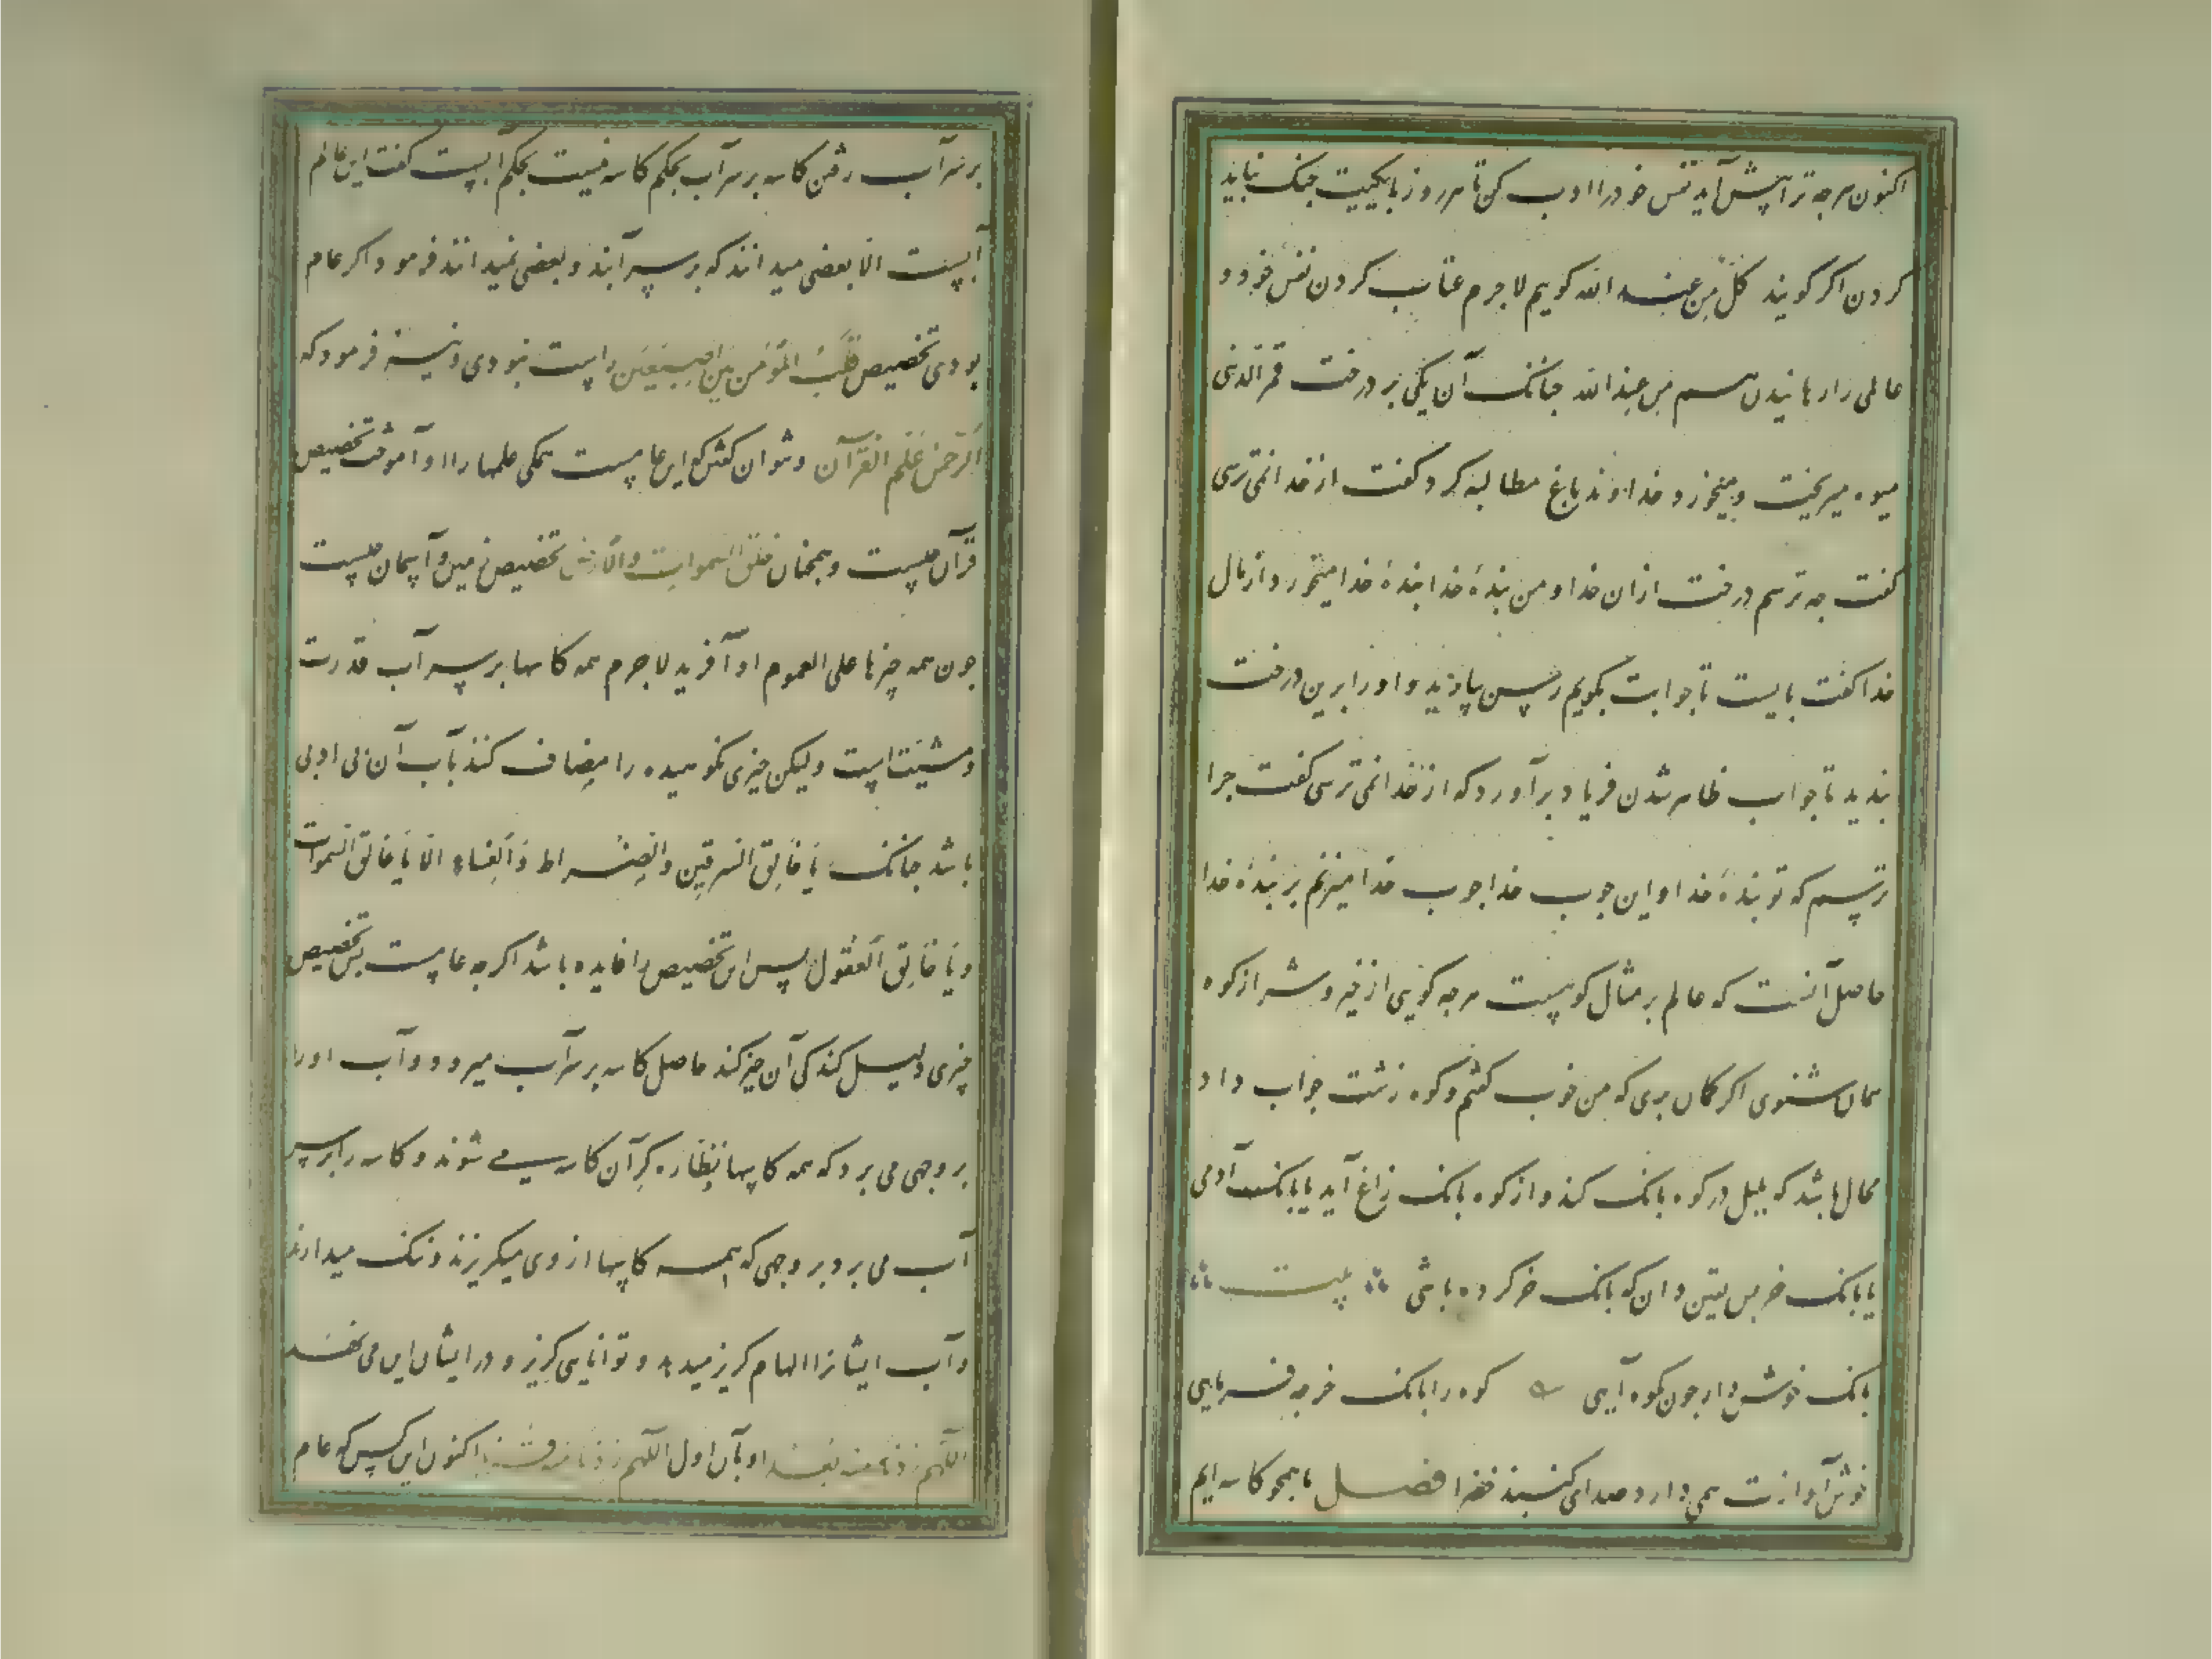 اکنون هرچه ترا پیش آید نفس خود را ادب کن تا هر روز با یکیت جنک نباید
کردن اکر کویند کلّ من عند الله کویم لاجرم عتاب کردن نفس خود و
عالمی را رهانیدن هم من عند الله چنانک آن یکی بر درخت قمرالدینی
میوه میریخت و میخورد خداوند باغ مطالبه کرد کفت از خدا نمی ترسی
کفت چه ترسم درخت ازان خدا و من بندۀ خدا بندۀ خدا میخورد از مال
خدا کفت بایست تا جوابت بکویم رسن بیاورید و او را برین درخت
بندید تا جواب ظاهر شدن فریاد برآورد که از خدا نمی ترسی کفت چرا
ترسم که تو بندۀ خدا و این چوب خدا چوب خدا میزنم بر بندۀ خدا
حاصل آنست که عالم بر مثال کوهست هرچه کویی از خیر و شر از کوه
همان شنوی اکر کمان بری که من خوب کفتم و کوه زشت جواب داد
محال باشد که بلبل در کوه بانک کند و از کوه بانک زاغ آید یا بانک آدمی
یا بانک خر پس یقین دان که بانک خر کرده باشی بیت
بانک خوش دار چون بکوه آیی کوه را بانک خر چه فرمایی
خوش آوازت همی دارد صدای کنبد خضرا فصل ما همچو کاسه ایم
بر سر آب رفتن کاسه بر سر آب بحکم کاسه نیست بحکم آبست کفت این عام
آبست الّا بعضی میدانند که بر سر آبند و بعضی نمیدانند فرمود اکر عام
بودی تخصیص قلب المؤمن بین اصبعین راست نبودی و نیز فرمود که
الرحمن علّم القرآن و نتوان کفتن که این عامست همکی علمها را او آموخت تخصیص
قرآن چیست و همچنان خلق السموات والارض تخصیص زمین و آسمان چیست
چون همه چیزها علی العموم او آفرید لاجرم همه کاسها بر سر آب قدرت
و مشیّت است ولیکن چیزی نکوهیده را مضاف کنند بآب آن بی ادبی
باشد چنانک یا خالق السرقین والضراط والفساء الّا یا خالق السموات
و یا خالق العقول پس این تخصیص را فایده باشد اکرچه عامست پس تخصیص
چیزی دلیل کند کی آن چیز کند حاصل کاسه بر سر آب میرود و آب او را
بر وجهی می برد که همه کاسها نظاره کر آن کاسه می شوند و کاسه را بر سر
آب می برد بر وجهی که همه کاسها از وی میکریزند و ننک میدارند
و آب ایشانرا الهام کریز میدهد و توانایی کریز و در ایشان این می نهد
اللهم زدنا منه بعدا و بآن اول اللهم زدنا منه قربا اکنون این کس که عام